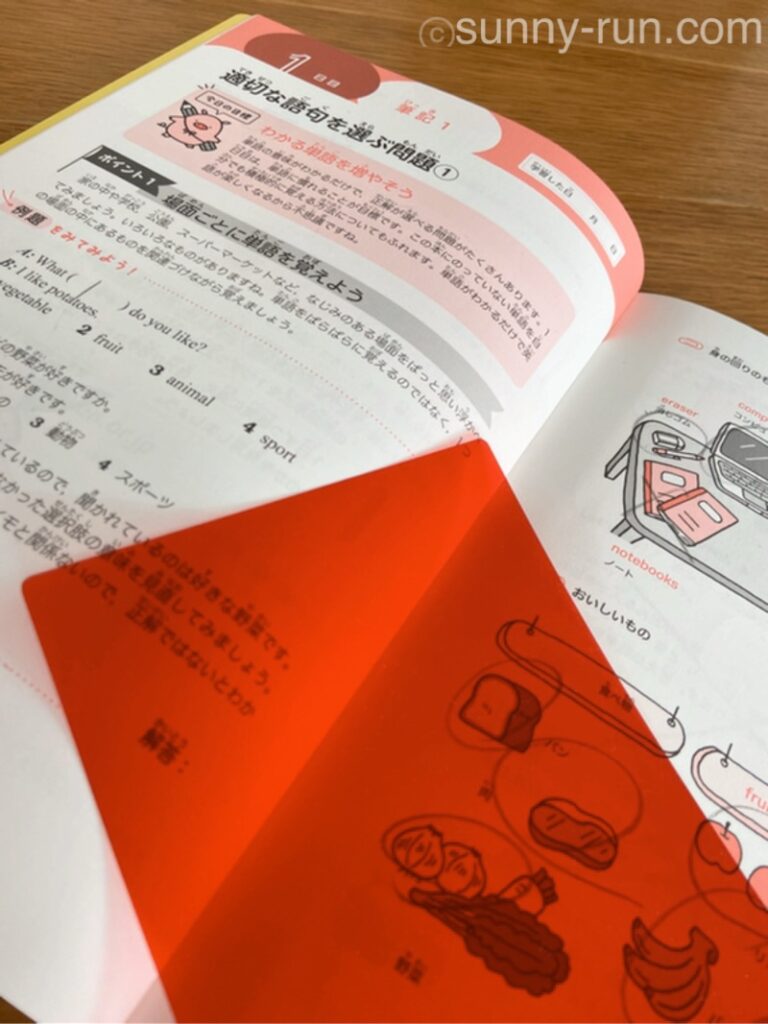 ©sunny-run.com
1日目
筆記1
適切な語句を選ぶ問題①
学習した日 月 日
今日の目標
わかる単語を増やそう
単語の意味がわかるだけで、正解が選べる問題がたくさんあります。1
日目は、単語に慣れることが目標です。この本にのっていない単語を自
分でも積極的に覚える方法についてもふれます。単語がわかるだけで英
語が楽しくなるから不思議ですね。
ポイント1
場面ごとに単語を覚えよう
家の中や学校、公園、スーパーマーケットなど、なじみのある場面をぱっと思い浮か
べてみましょう。いろいろなものがありますね。単語をばらばらに覚えるのではなく、1つ
の場面の中にあるものを関連づけながら覚えましょう。
例題をみてみよう!
A: What ( ) do you like?
B: I like potatoes.
vegetable
2 fruit
3 animal
4 sport
の野菜が好きですか。
が好きです。
3 動物
4 スポーツ
ているので、聞かれているのは好きな野菜です。
なかった選択肢の意味を見直してみましょう。
イモと関係ないので、正解ではないとわか
解答:
身の回りのも
eraser
消しゴム
comp
コンピ
notebooks
ノート
おいしいもの
食べ物
パン
肉
野菜
frui